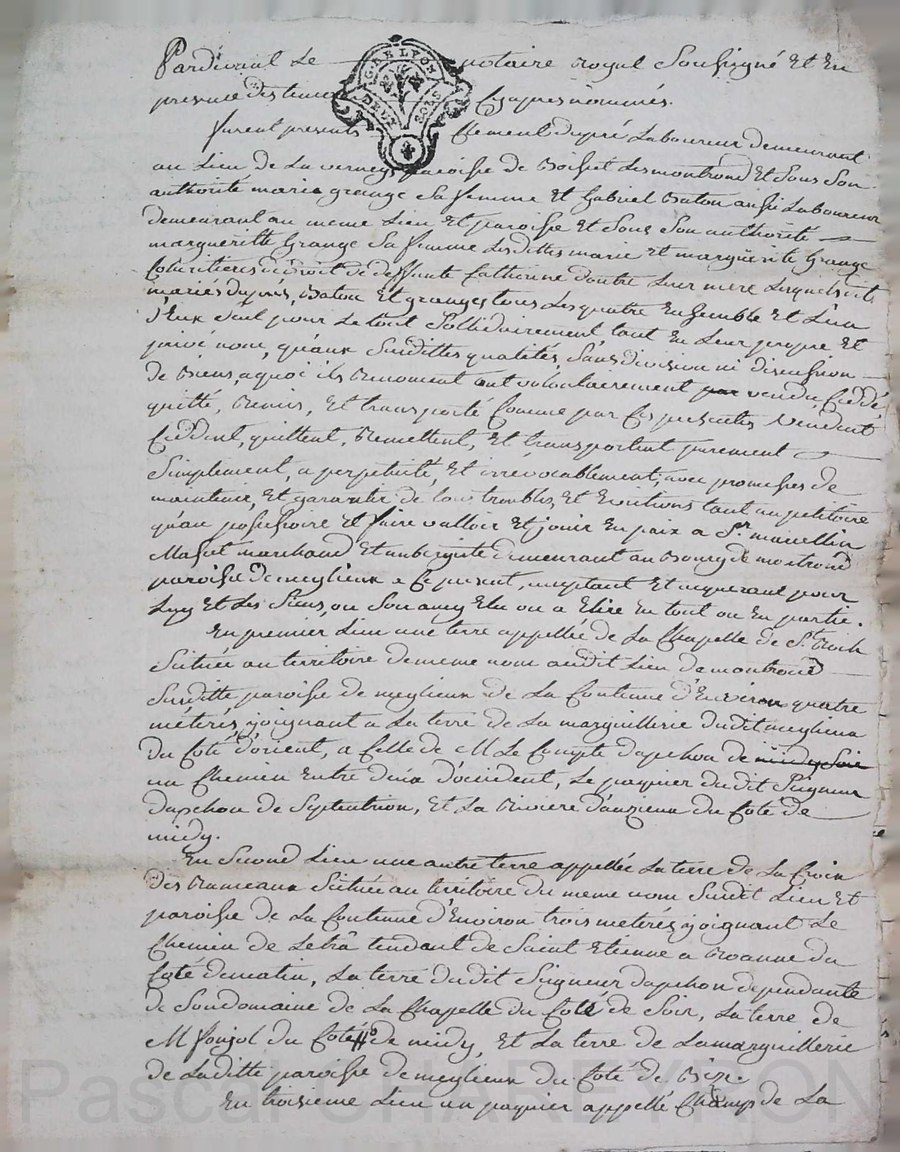 Pardevant Le notaire Royal Soussigné Et En
presence des temoins Cyapres nommés.
G. DE LYON
DEUX SOLS
furent presents Clement dupré Laboureur demeurant
au Lieu de La verney paroisse de Boisset Les montrond Et Sous Son
authorité marie grange Sa femme Et Gabriel Baton aussi Laboureur
demeurant au meme Lieu Et paroisse Et Sous Son authorité
margueritte Grange Sa femme Lesdittes marie Et marguerite Grange
Coheritieres de droit de deffunte Catherine Leur mere Lesquels
mariés duprés, Baton Et granges tous Les quatre Ensemble Et L'un
d'Eux Seul pour Le tout Sollidairement, tant En Leur propre Et
privé nom, qu'aux Susdittes qualités, Sans division ni discussion
de Biens, aquoi ils Renoncent ont volontairement vendu, Ceddé,
quitté, Remis, Et transporté Comme par Ces presentes vendent
Ceddent, quittent, Remettent, Et transportent purement
Simplement, a perpetuité, Et irrévocablement, avec promesses de
maintenir, Et garantir de tous troubles, Et Evictions tant au petitoire
qu'au possessoire Et faire valloir Et jouir En paix a Sr. marcellin
Masset marchand Et aubergiste demeurant au Bourg de montrond
paroisse de meylieux a Ce present, acceptant Et acquerant pour
Luy Et Les Siens, ou Son amy Elu ou a Elire En tout ou En partie.
En premier Lieu une terre appellée de La Chapelle de St. Roch
Scituée au territoire de meme nom audit Lieu de montrond
Susditte paroisse de meylieux de La Contenue d'Environ quatre
méterés, joignant a La terre de La marguillerie dudit meylieux
du Coté d'orient, a Celle de M Le Compte dapchon de
un Chemin Entre deux d'occident, Le paquier dudit Seigneur
dapchon de Septentrion, Et La Riviere d'anzieux du Coté de
midy.
En Second Lieu une autre terre appellée La terre de La Croix
des Rameaux Scituée au territoire du meme nom Susdit Lieu Et
paroisse de La Contenue d'Environ trois meterés, joignant Le
Chemin de Letrâ tendant de Saint Etienne a Roanne du
Coté de matin, La terre dudit Seigneur dapchon dependante
de Son domaine de La Chapelle du Coté de Soir, La terre de
M foujol du Coté de midy, Et La terre de La marguillerie
de Laditte paroisse de meylieux du Coté de Bize.
En troisieme Lieu un paquier appellé Champ de La
Pascale HAREYRON